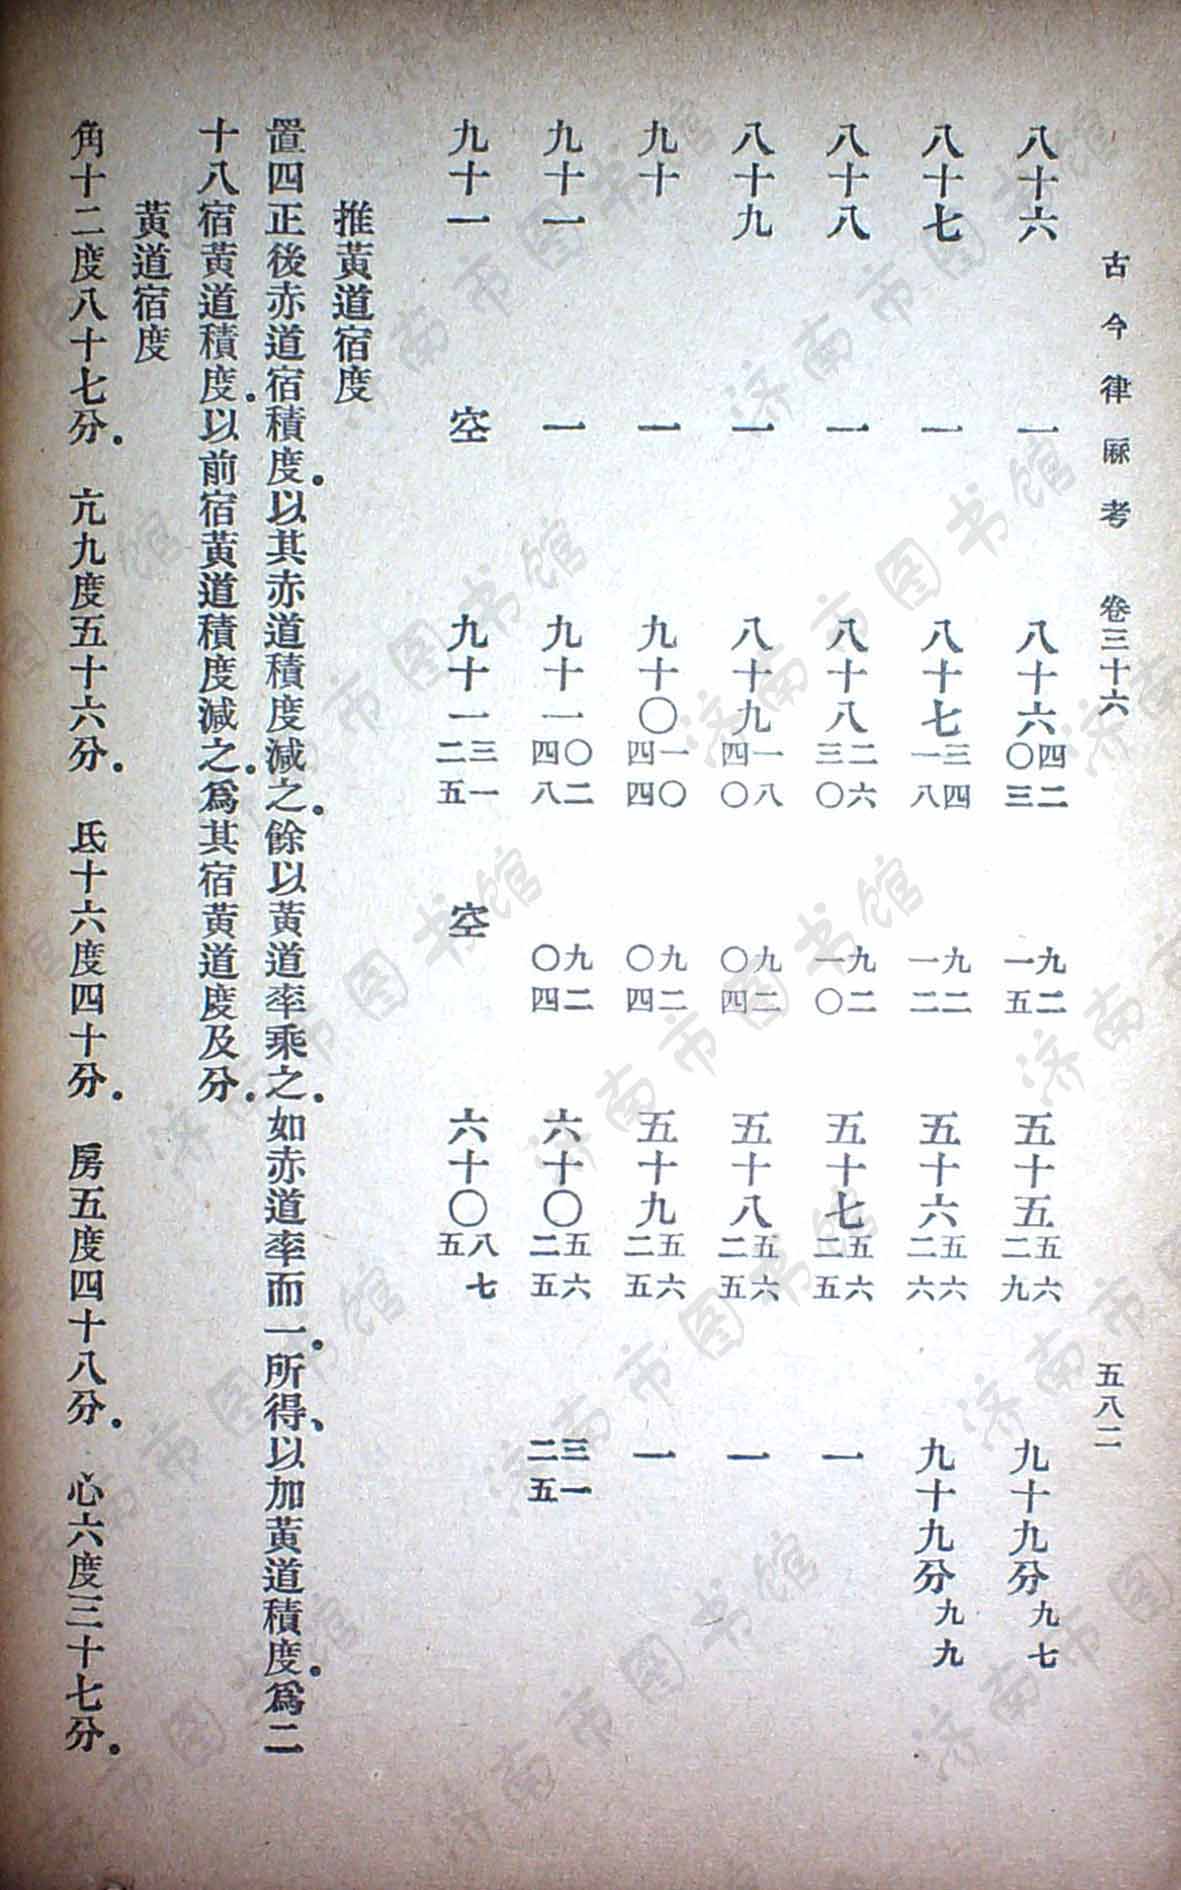 古今律厤考 卷三十六 五八二
八十六 一 八十六 四二〇三 九二一五 五十五 五六二九 九十九分 九七
八十七 一 八十七 三四一八 九二一二 五十六 五六二六 九十九分 九九
八十八 一 八十八 二六三〇 九二一〇 五十七 五六二五 一
八十九 一 八十九 一八四〇 九二〇四 五十八 五六二五 一
九十 一 九十〇 一〇四四 九二〇四 五十九 五六二五 一
九十一 一 九十一 〇二四八 九二〇四 六十〇 五六二五 三一二五
九十一 空 九十一 三一二五 空 六十〇 八七五
推黃道宿度
置四正後赤道宿積度。以其赤道積度減之。餘以黃道率乘之。如赤道率而一。所得、以加黃道積度。爲二
十八宿黃道積度。以前宿黃道積度減之。爲其宿黃道度及分。
黃道宿度
角十二度八十七分。 亢九度五十六分。 氐十六度四十分。 房五度四十八分。 心六度三十七分。
济南市图书馆